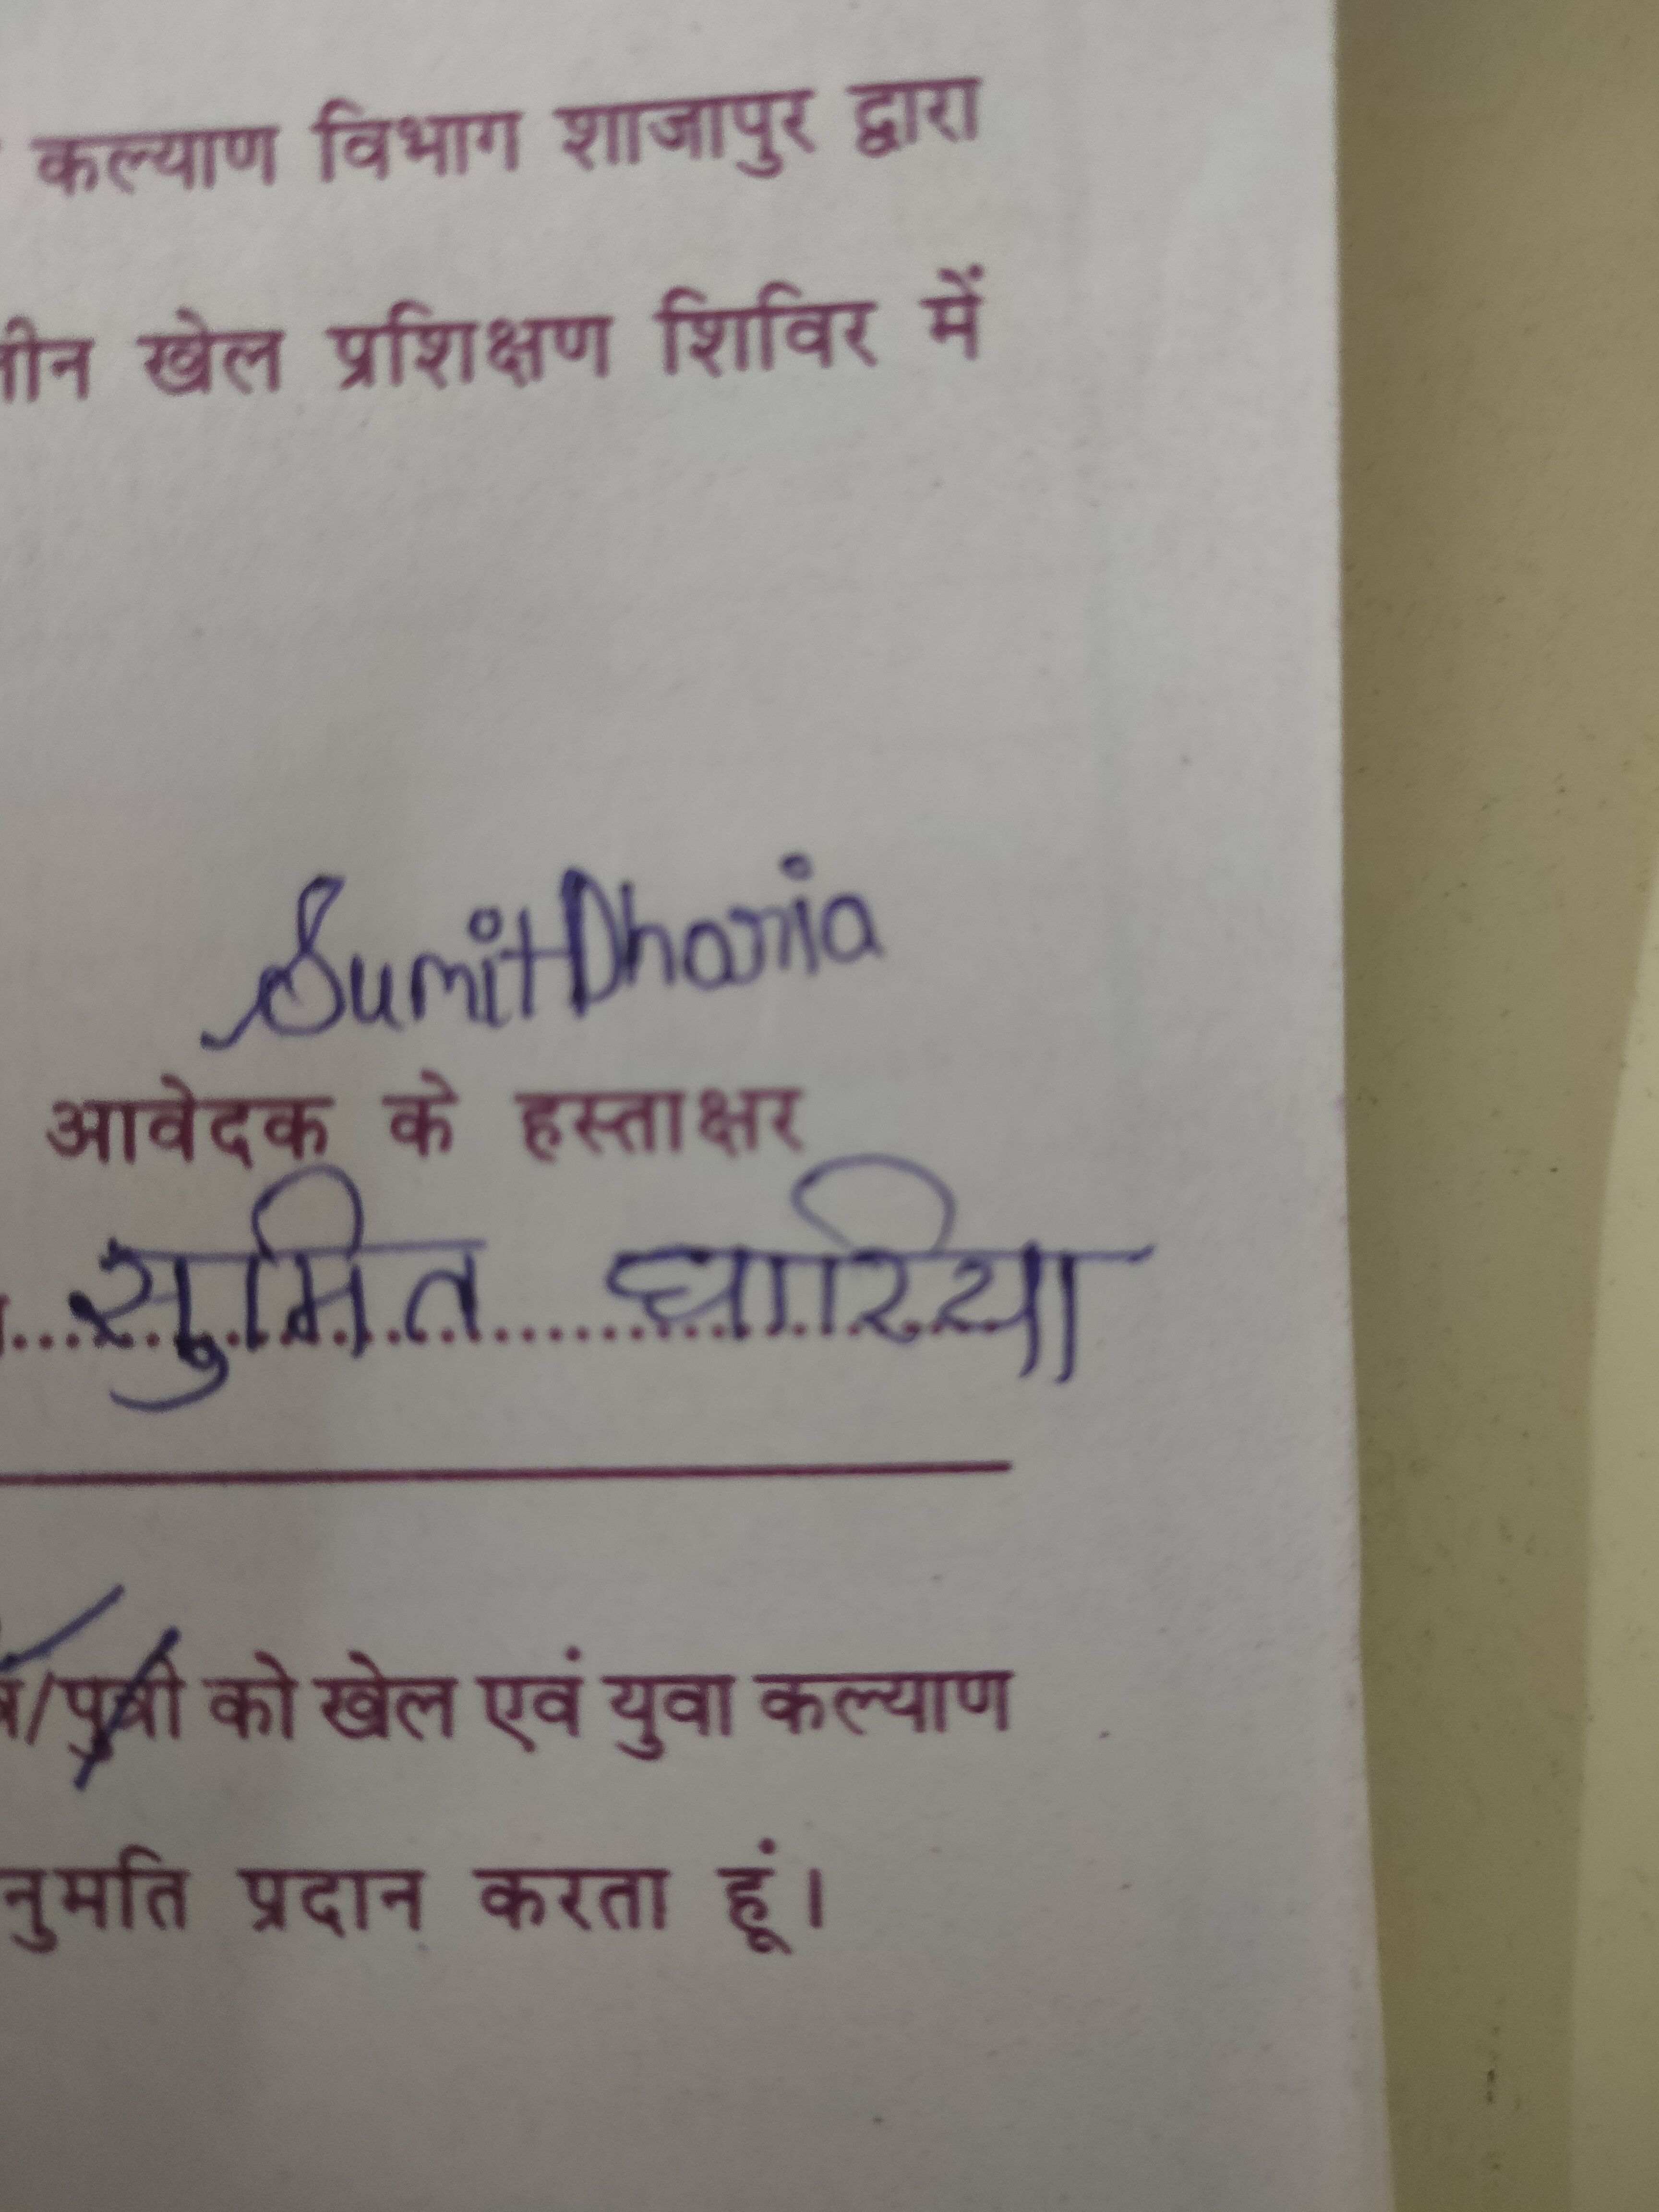 कल्याण विभाग शाजापुर द्वारा
खेल प्रशिक्षण शिविर में
Sumit Dharia
आवेदक के हस्ताक्षर
सुमित धारिया
/पुत्री को खेल एवं युवा कल्याण
नुमति प्रदान करता हूं।